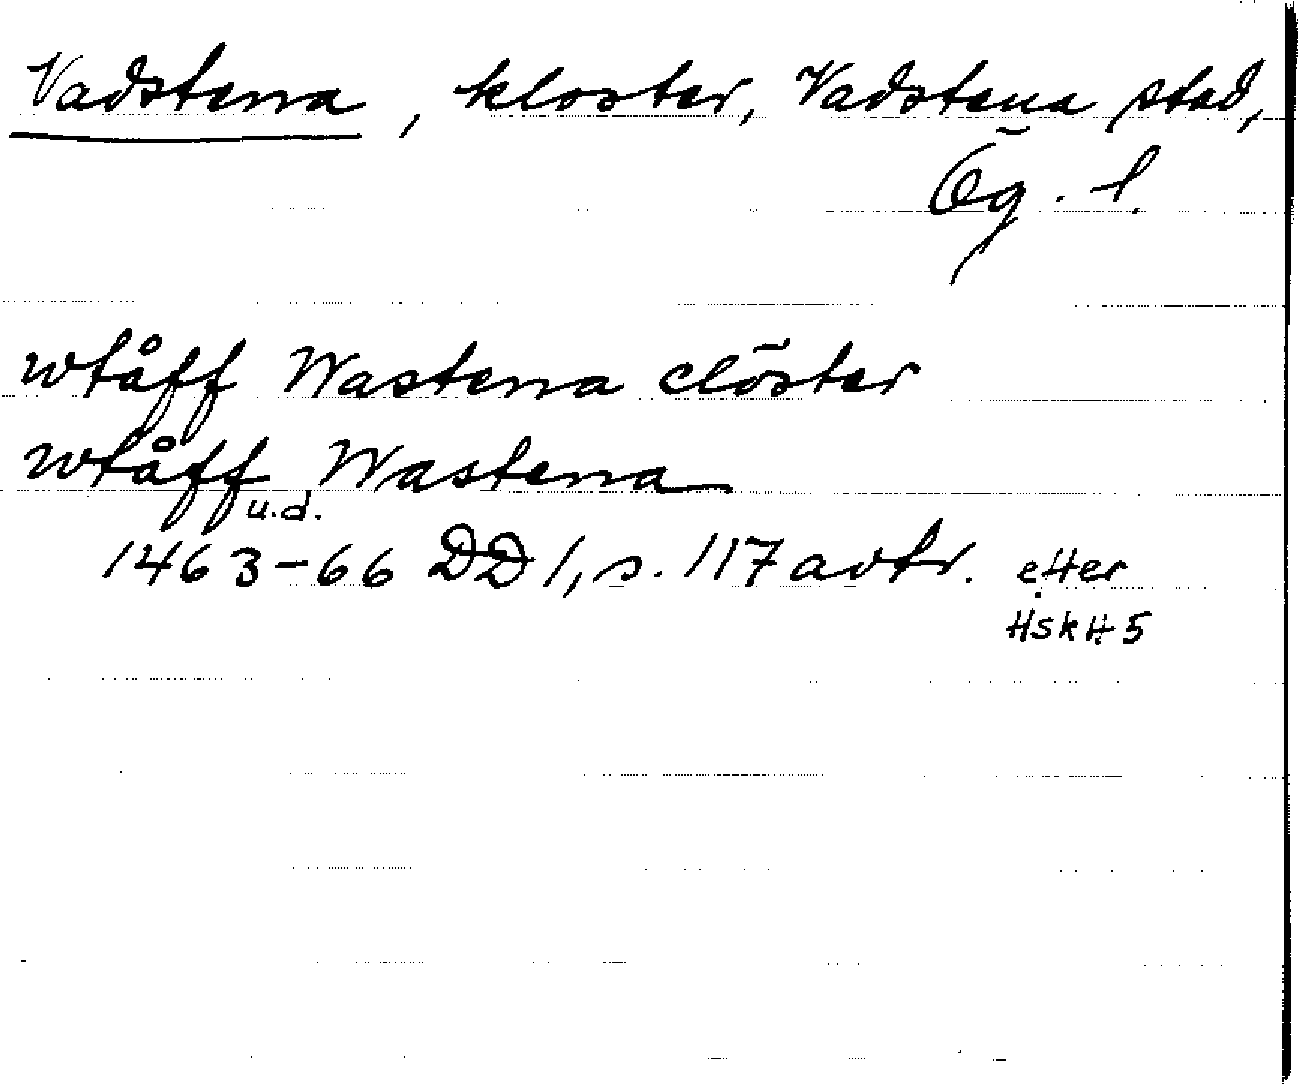 Vadstena, kloster, Vadstena stad,
Ög. l.
wtåff Wastena clöster
wtåff Wastena
u.d.
1463-66 DD 1, s. 117 avtr. efter
HskH 5